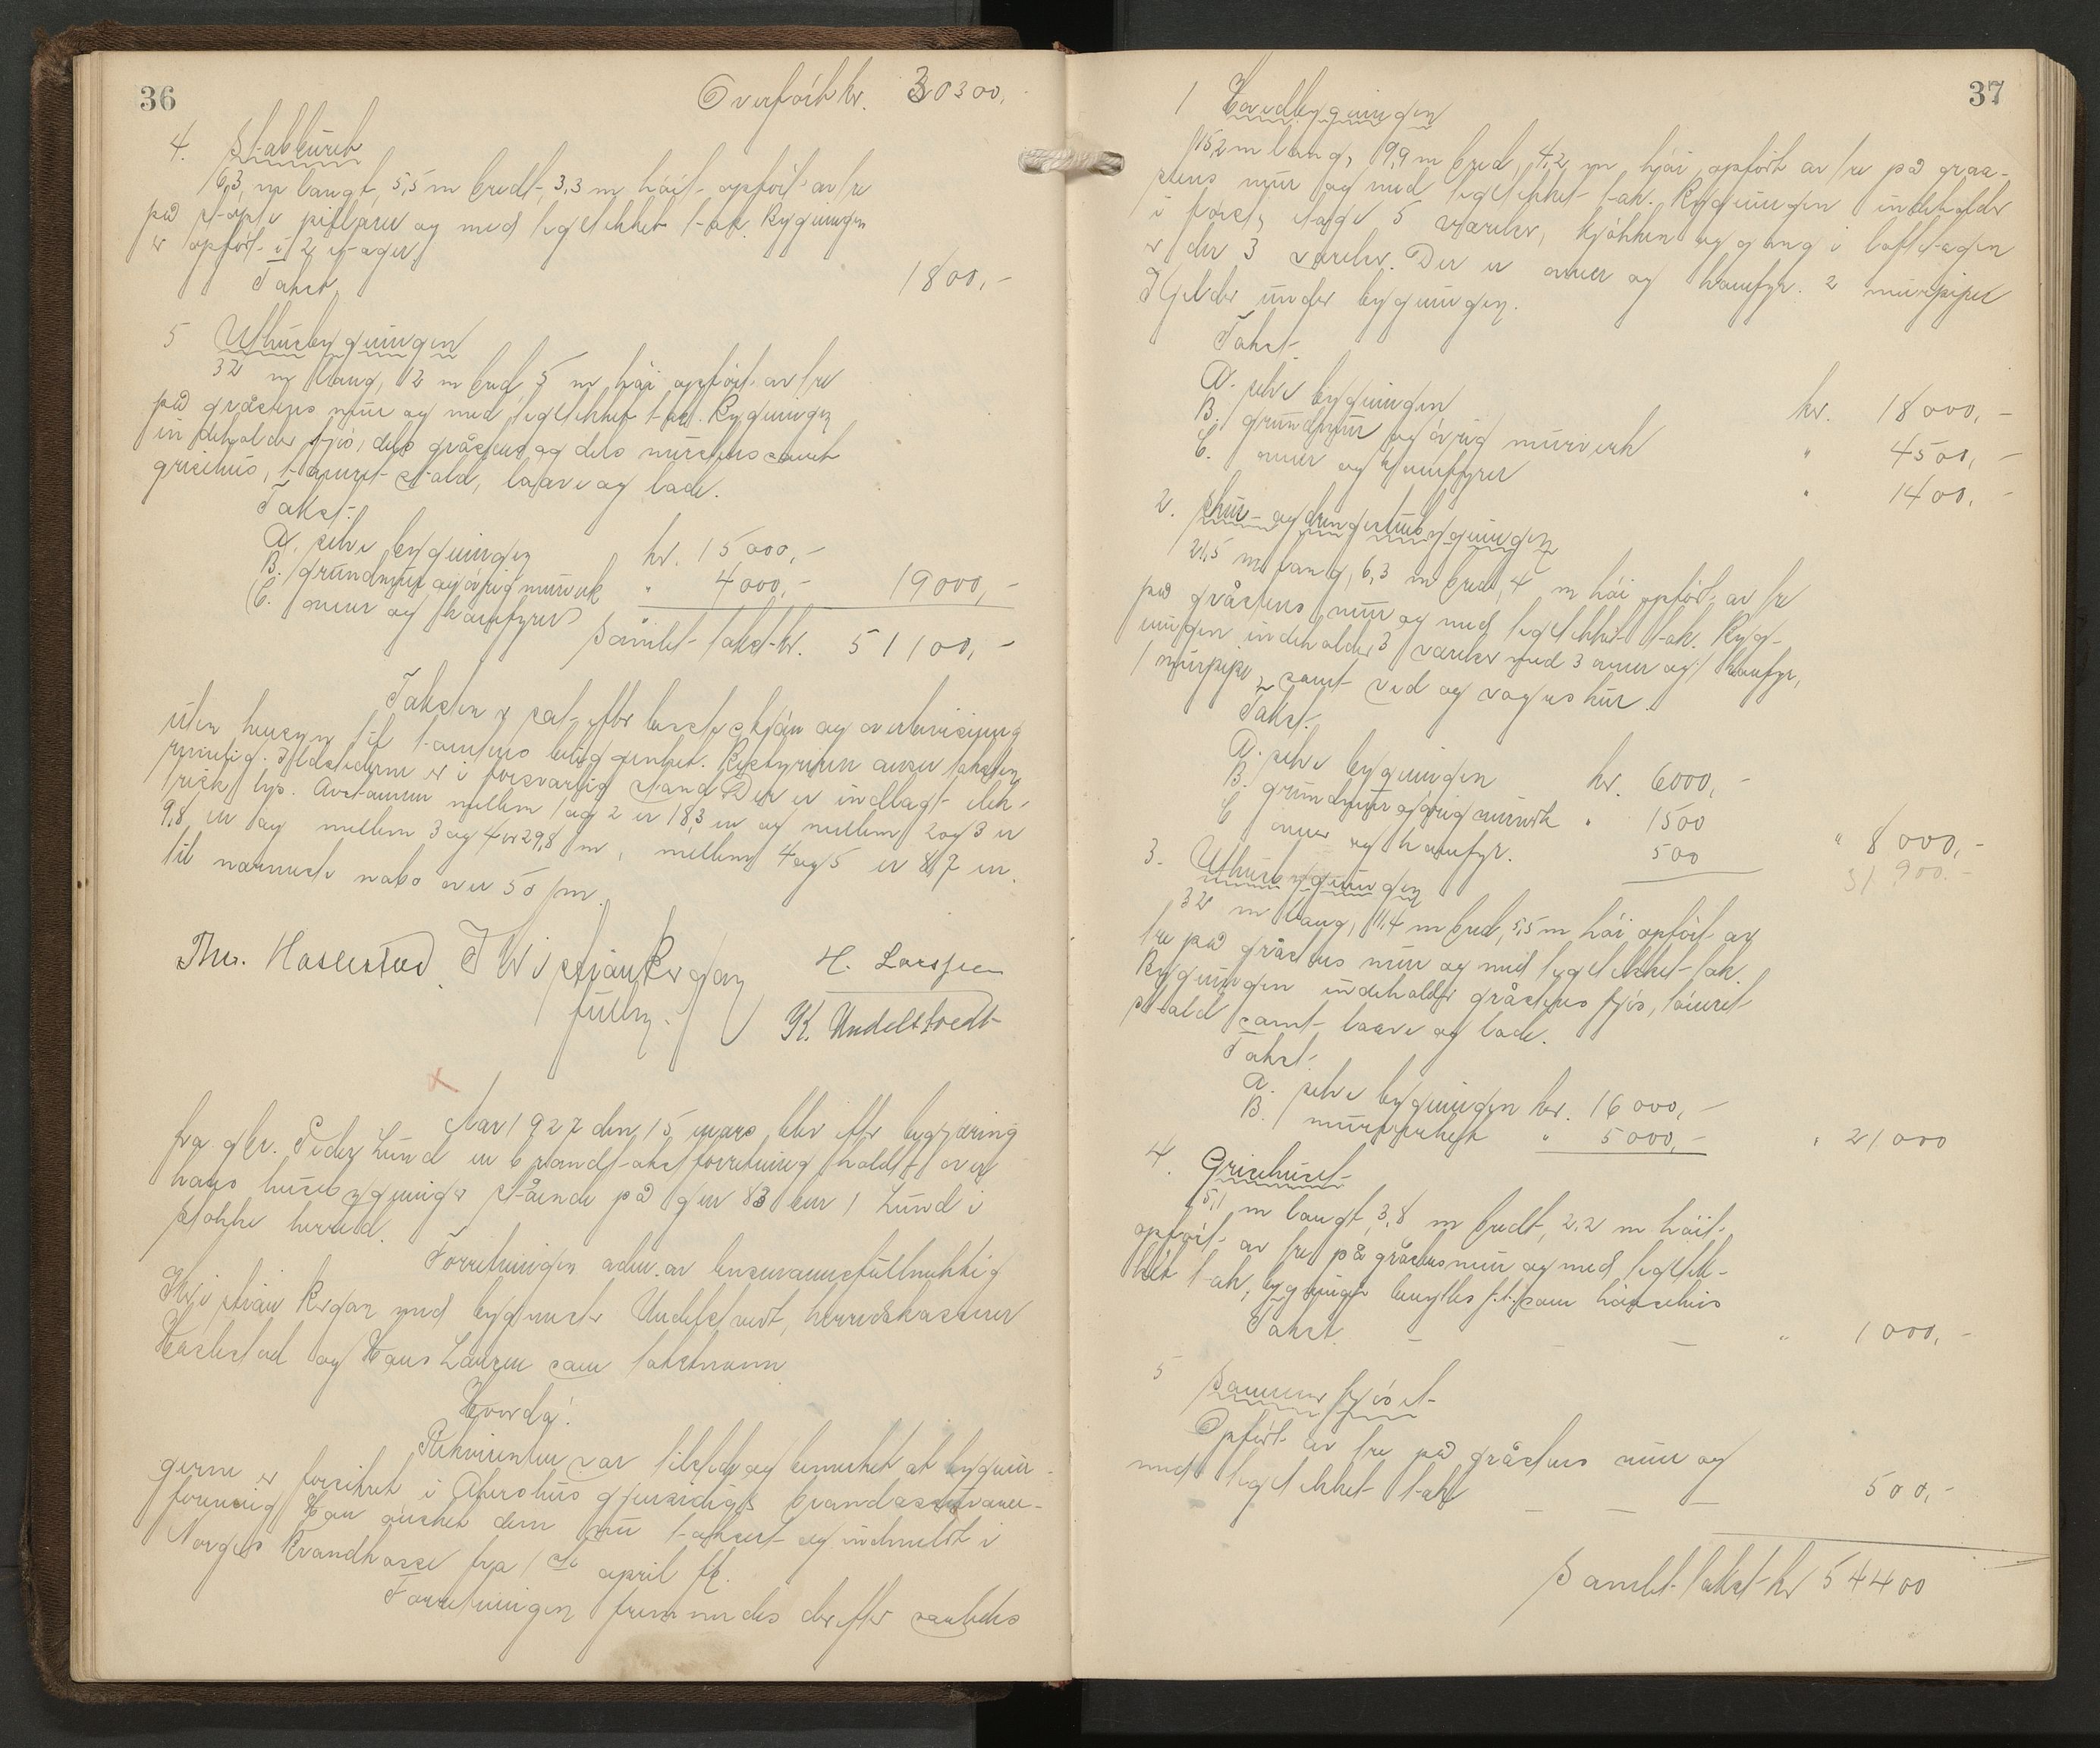 36
Overført kr. 30300,-
4. Stabburet
6,3 m langt, 5,5 m bredt, 3,3 m høit opført av tre
på støpte pillarer og med teglstekket tak. Bygningen
er opført i 2 etager.
Takst. 1800,-
5 Uthusbygningen
32 m lang, 12 m bred, 5 m høi opført av tre
på gråstens mur og med teglstekket tak. Bygningen
indeholder fjøs, dels gråstens og dels murstens samt
grisehus, tømret stald, laave og lade.
Takst:
A. selve bygningen kr. 15000,-
B. grundmur og øvrig murverk " 4000,- 19000,-
C. ovner og kamfyrer
Samlet takst kr. 51100,-
Taksten er sat efter beste skjøn og overbevisning
uten hensyn til tomtens beliggenhet. Bestyreren anser taksten
rimelig. Ildstederne er i forsvarlig stand. Der er indlagt elek-
trisk lys. Avstanden mellem 1 og 2 er 18,3 m og mellem 2 og 3 er
9,8 m og mellem 3 og 4 er 29,8 m, mellem 4 og 5 er 8,7 m.
til nærmeste nabo over 50 m.
Thv. Haslestad. Kristian Bergan H. Larssen
fullm. K. Undelstvedt
x
Aar 1927 den 15 mars blev efter begjæring
fra gbr. Peder Lund en brandtakstforretning holdt over
hans husebygninger stående på gnr 83 bnr 1 Lund i
Stokke herred.
Forretningen adm. av lensmannsfullmektig
Kristian Bergan med bygmester Undelstvedt, herredskasserer
Haslestad og Hans Larsen som takstmenn.
Hvorda:
Rekvirenten var tilstede og bemerket at bygnin-
gerne er forsikret i Akershus gjensidige brandassurance-
forening. Han ønsket dem nu taksert og indmeldt i
Norges Brandkasse fra 1ste april ft.
Forretningen fremmedes derefter saaledes
37
1 Hovedbygningen
15,2 m lang, 9,9 m bred, 4,2 m høi opført av tre på graa-
stens mur og med teglstekket tak. Bygningen indeholder
i første etage 5 værelser, kjøkken og gang i loftetagen
er der 3 værelser. Der er ovner og kamfyr. 2 murpiper
Kjelder under bygningen.
Takst.
A. selve bygningen kr. 18000,-
B. grundmur og øvrig murverk " 4500,-
C. ovner og kamfyrer " 1400,-
2. Skur- og drengestubygningen
21,5 m lang, 6,3 m bred, 4 m høi opført av tre
på gråstens mur og med teglstekket tak. Byg-
ningen indeholder 3 værelser med 3 ovner og 1 kamfyr,
1 murpipe, samt ved og vognskur.
Takst:
A. selve bygningen kr. 6000,-
B. grundmur og øvrig murverk " 1500
C ovner og kamfyr. 500 " 8000,-
31900.-
3. Uthusbygningen
32 m lang, 11,4 m bred, 5,5 m høi opført av
tre på gråstens mur og med teglstekket tak.
Bygningen indeholder gråstens fjøs, tømret
stald samt laave og lade.
Takst.
A. selve bygningen kr. 16000,-
B. murverket " 5000,- " 21000
4. Grisehuset
5,1 m langt, 3,8 m bredt, 2,2 m høit
opført av tre på gråstensmur og med teglstek-
ket tak, bygningen benyttes f.t. som hønsehus
Takst. - - - " 1000,-
5 Sommerfjøset
Opført av tre på gråstens mur og
med teglstekket tak - - - 500,-
Samlet takst kr 54400